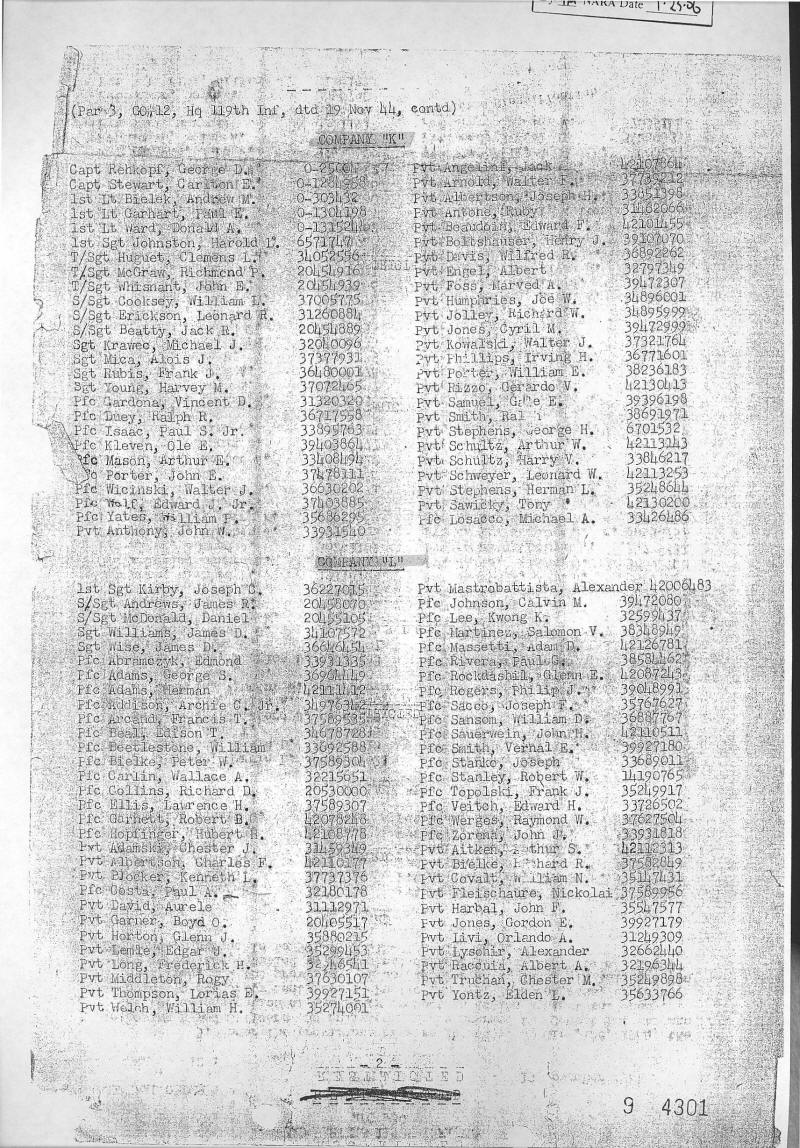 NARA Date 1-25-06
(Par 3, GO#12, Hq 119th Inf, dtd 19 Nov 44, contd)
COMPANY "K"
Capt Rehkopf, George D.
Capt Stewart, Carlton E. 0-1284958
1st Lt Bielek, Andrew M. 0-303432
1st Lt Garhart, Paul E. 0-1304198
1st Lt Ward, Donald A.
1st Sgt Johnston, Harold L. 6571747
T/Sgt Huguet, Clemens L. 34052556
T/Sgt McGraw, Richmond P. 20454916
T/Sgt Whisnant, John E. 20454939
S/Sgt Cooksey, William L. 37005775
S/Sgt Erickson, Leonard R. 31260884
S/Sgt Beatty, Jack R. 20454889
Sgt Krawec, Michael J. 32040096
Sgt Mica, Alois J. 37377931
Sgt Rubis, Frank J. 36480001
Sgt Young, Harvey M. 37072465
Pfc Cardona, Vincent D. 31320320
Pfc Duey, Ralph R. 36717558
Pfc Isaac, Paul S. Jr. 33895763
Pfc Kleven, Ole E. 39403864
Pfc Mason, Arthur E. 33408494
Pfc Porter, John E. 37478111
Pfc Wicinski, Walter J. 36630202
Pfc Wolf, Edward J. Jr. 37403885
Pfc Yates, William F. 35686295
Pvt Anthony, John W. 33931540
Pvt Angelini, Jack 42107864
Pvt Arnold, Walter F. 37735212
Pvt Albertson, Joseph H. 33851398
Pvt Antone, Ruby 31482066
Pvt Beaudoin, Edward F. 42101455
Pvt Boltshauser, Henry J. 39107070
Pvt Davis, Wilfred R. 36892262
Pvt Engel, Albert 32797349
Pvt Foss, Marved A. 39472307
Pvt Humphries, Joe W. 34896001
Pvt Jolley, Richard W. 34895999
Pvt Jones, Cyril M. 39472999
Pvt Kowalski, Walter J. 37321764
Pvt Phillips, Irving H. 36771601
Pvt Porter, William E. 38236183
Pvt Rizzo, Gerardo V. 42130413
Pvt Samuel, E. 39396198
Pvt Smith, 38691971
Pvt Stephens, George H. 6701532
Pvt Schultz, Arthur W. 42113143
Pvt Schultz, Harry V. 33846217
Pvt Schweyer, Leonard W. 42113253
Pvt Stephens, Herman L. 35248644
Pvt Sawicky, Tony 42130200
Pfc Losacco, Michael A. 33426486
COMPANY "L"
1st Sgt Kirby, Joseph C. 36227015
S/Sgt Andrews, James R. 20458070
S/Sgt McDonald, Daniel 20455105
Sgt Williams, James D. 34107572
Sgt Wise, James D. 36646454
Pfc Abramczyk, Edmond 33931335
Pfc Adams, George S. 36964449
Pfc Adams, Herman 42111412
Pfc Addison, Archie C. Jr. 34976342
Pfc Arcand, Francis T. 37589535
Pfc Beal, Edison T. 34678728
Pfc Beetlestone, William 33692588
Pfc Bielke, Peter W. 37589304
Pfc Carlin, Wallace A. 32215651
Pfc Collins, Richard D. 20530000
Pfc Ellis, Lawrence H. 37589307
Pfc Garnett, Robert B. 42078248
Pfc Hopfinger, Hubert H. 42108778
Pvt Adamski, Chester J. 31459349
Pvt Albertson, Charles F. 42110177
Pvt Blocker, Kenneth L. 37737376
Pfc Costa, Paul A. 32180178
Pvt David, Aurele 31112971
Pvt Garner, Boyd O. 20405517
Pvt Horton, Glenn J. 35880215
Pvt Lemle, Edgar J. 35299453
Pvt Long, Frederick H.
Pvt Middleton, Rogy 37630107
Pvt Thompson, Lorias E. 39927151
Pvt Welch, William H. 35274001
Pvt Mastrobattista, Alexander 42006483
Pfc Johnson, Calvin M. 39472080
Pfc Lee, Kwong K. 32599437
Pfc Martinez, Salomon V. 38348949
Pfc Massetti, Adam D. 42126781
Pfc Rivera, Paul G. 38584462
Pfc Rockdashil, Glenn E. 42087243
Pfc Rogers, Philip J. 39048991
Pfc Sacco, Joseph F. 35767627
Pfc Sansom, William D. 36887767
Pfc Sauerwein, John H. 42110511
Pfc Smith, Vernal E. 39927180
Pfc Stanko, Joseph 33689011
Pfc Stanley, Robert W. 14190765
Pfc Topolski, Frank J. 35249917
Pfc Veitch, Edward H. 33726502
Pfc Werges, Raymond W. 37627504
Pfc Zorena, John J. 33931818
Pvt Aitken, Arthur S. 42112313
Pvt Bielke, R. 37582849
Pvt Covalt, William N. 35147431
Pvt Fleischaure, Nickolai 37589956
Pvt Harbal, John F. 35547577
Pvt Jones, Gordon E. 39927179
Pvt Livi, Orlando A. 31249309
Pvt Lysohir, Alexander 32662440
Pvt Raccuia, Albert A. 32196344
Pvt Truchan, Chester M. 35249898
Pvt Yontz, Elden L. 35633766
- 2 -
9 4301